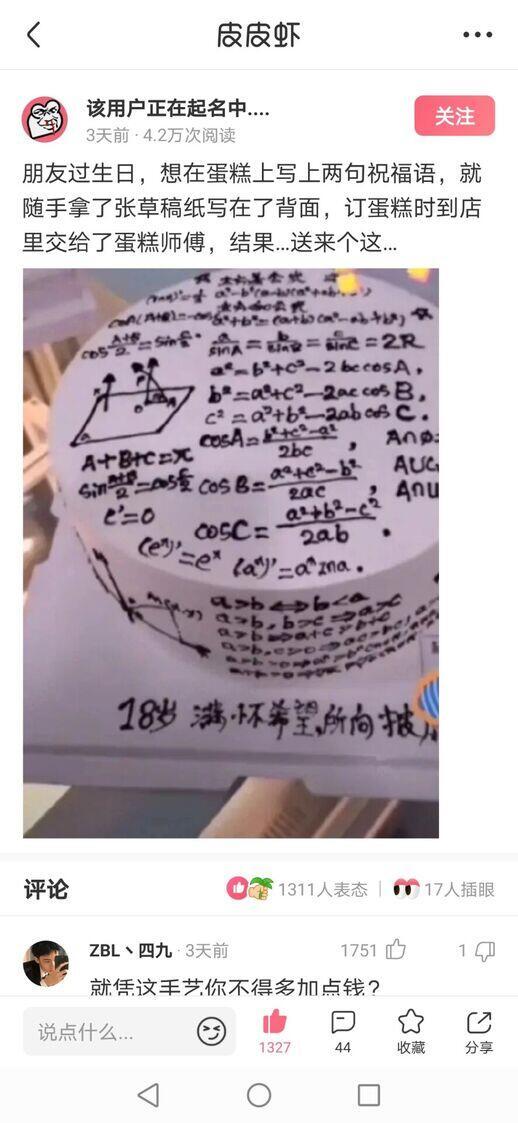 皮皮虾
该用户正在起名中....
3天前 · 4.2万次阅读
关注
朋友过生日，想在蛋糕上写上两句祝福语，就
随手拿了张草稿纸写在了背面，订蛋糕时到店
里交给了蛋糕师傅，结果...送来个这...
a/sinA = b/sinB = c/sinC = 2R
a²=b²+c²-2bccosA,
b²=a²+c²-2accosB,
c²=a²+b²-2abcosC.
cosA=(b²+c²-a²)/2bc,
A+B+C=π
cosB=(a²+c²-b²)/2ac,
c'=0
cosC=(a²+b²-c²)/2ab.
(eˣ)'=eˣ (aˣ)'=aˣlna.
a>b⟺b<a
18岁 满怀希望,所向披
评论
1311人表态
17人插眼
ZBL丶四九 · 3天前
1751
1
就凭这手艺你不得多加点钱？
说点什么...
1327
44
收藏
分享